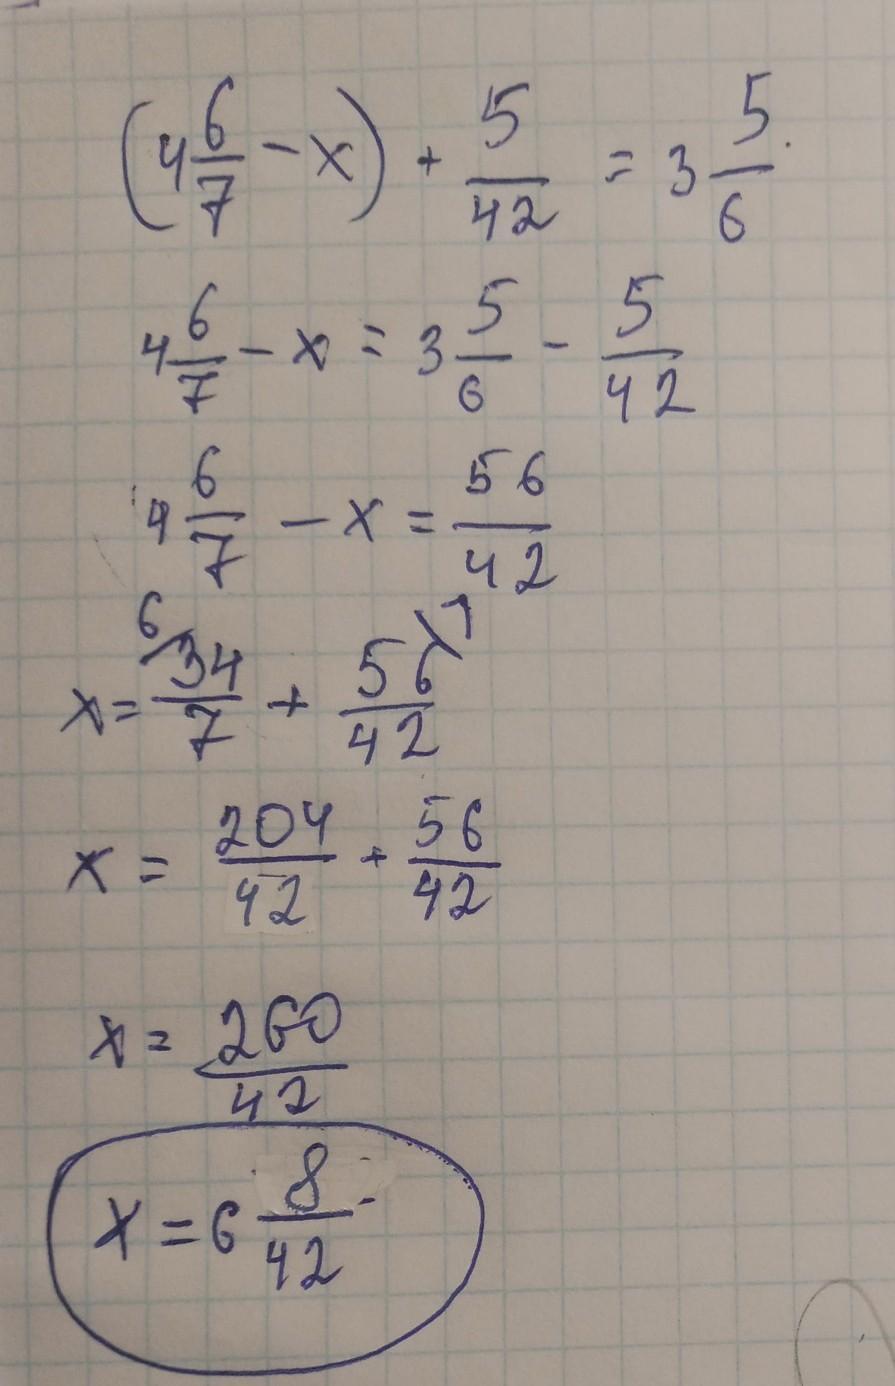 (4 6/7 - x) + 5/42 = 3 5/6
4 6/7 - x = 3 5/6 - 5/42
4 6/7 - x = 56/42
x = 6/ 34/7 + 56/42 \1
x = 204/42 + 56/42
x = 260/42
x = 6 8/42